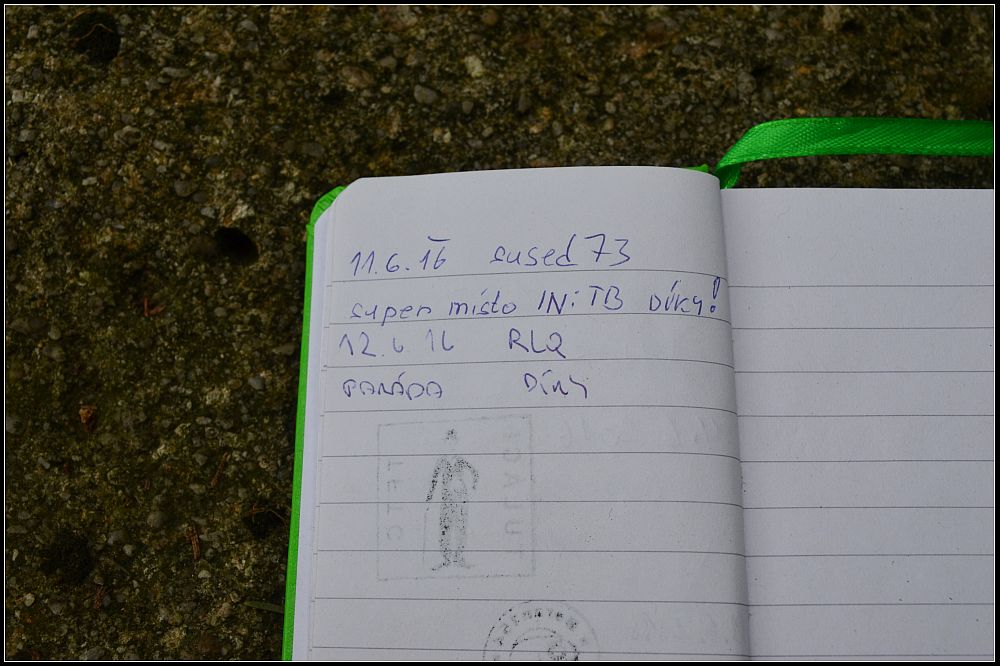 11.6.16 sused 73
super místo IN: TB DÍKY!
12.6.16 RLQ
PARÁDA DÍKY